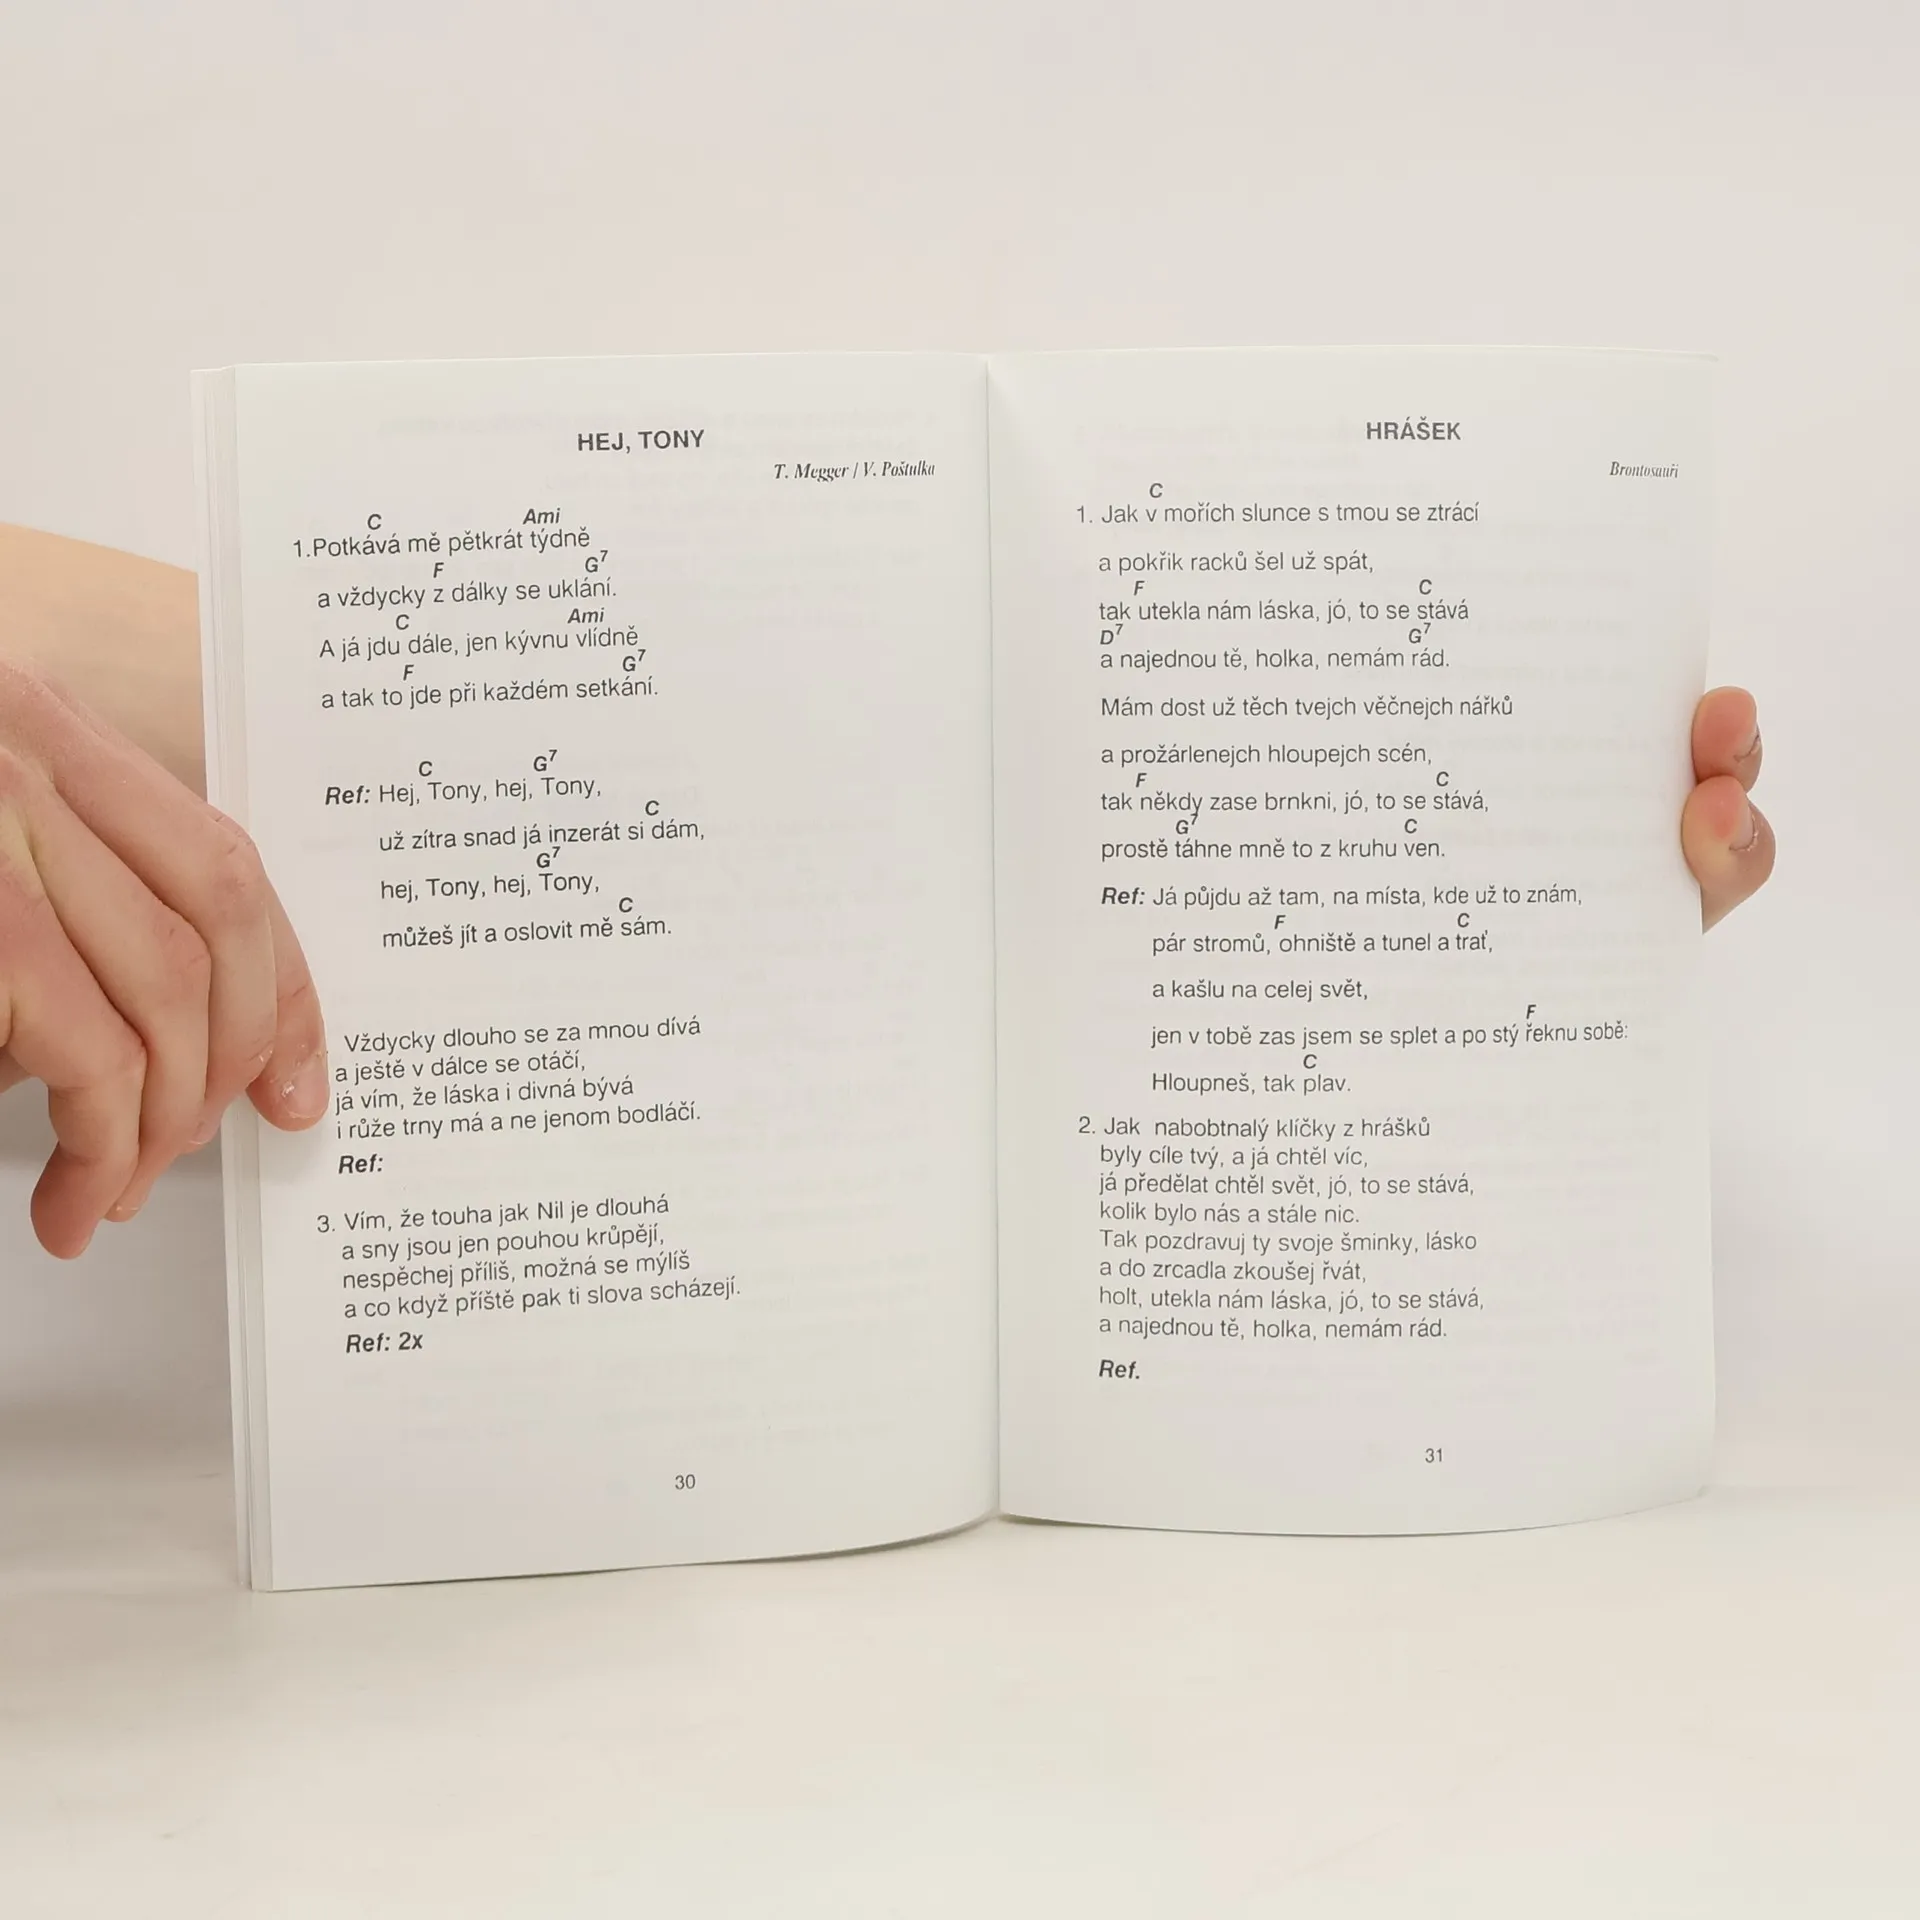 HEJ, TONY
T. Megger / V. Poštulka
C Ami
1.Potkává mě pětkrát týdně
F G7
a vždycky z dálky se uklání.
C Ami
A já jdu dále, jen kývnu vlídně
F G7
a tak to jde při každém setkání.
C G7
Ref: Hej, Tony, hej, Tony,
C
už zítra snad já inzerát si dám,
G7
hej, Tony, hej, Tony,
C
můžeš jít a oslovit mě sám.
Vždycky dlouho se za mnou dívá
a ještě v dálce se otáčí,
já vím, že láska i divná bývá
i růže trny má a ne jenom bodláčí.
Ref:
3. Vím, že touha jak Nil je dlouhá
a sny jsou jen pouhou krůpějí,
nespěchej příliš, možná se mýlíš
a co když příště pak ti slova scházejí.
Ref: 2x
30
HRÁŠEK
Brontosauři
C
1. Jak v mořích slunce s tmou se ztrácí
a pokřik racků šel už spát,
F C
tak utekla nám láska, jó, to se stává
D7 G7
a najednou tě, holka, nemám rád.
Mám dost už těch tvejch věčnejch nářků
a prožárlenejch hloupejch scén,
F C
tak někdy zase brnkni, jó, to se stává,
G7 C
prostě táhne mně to z kruhu ven.
Ref: Já půjdu až tam, na místa, kde už to znám,
F C
pár stromů, ohniště a tunel a trať,
a kašlu na celej svět,
F
jen v tobě zas jsem se splet a po stý řeknu sobě:
C
Hloupneš, tak plav.
2. Jak nabobtnalý klíčky z hrášků
byly cíle tvý, a já chtěl víc,
já předělat chtěl svět, jó, to se stává,
kolik bylo nás a stále nic.
Tak pozdravuj ty svoje šminky, lásko
a do zrcadla zkoušej řvát,
holt, utekla nám láska, jó, to se stává,
a najednou tě, holka, nemám rád.
Ref.
31